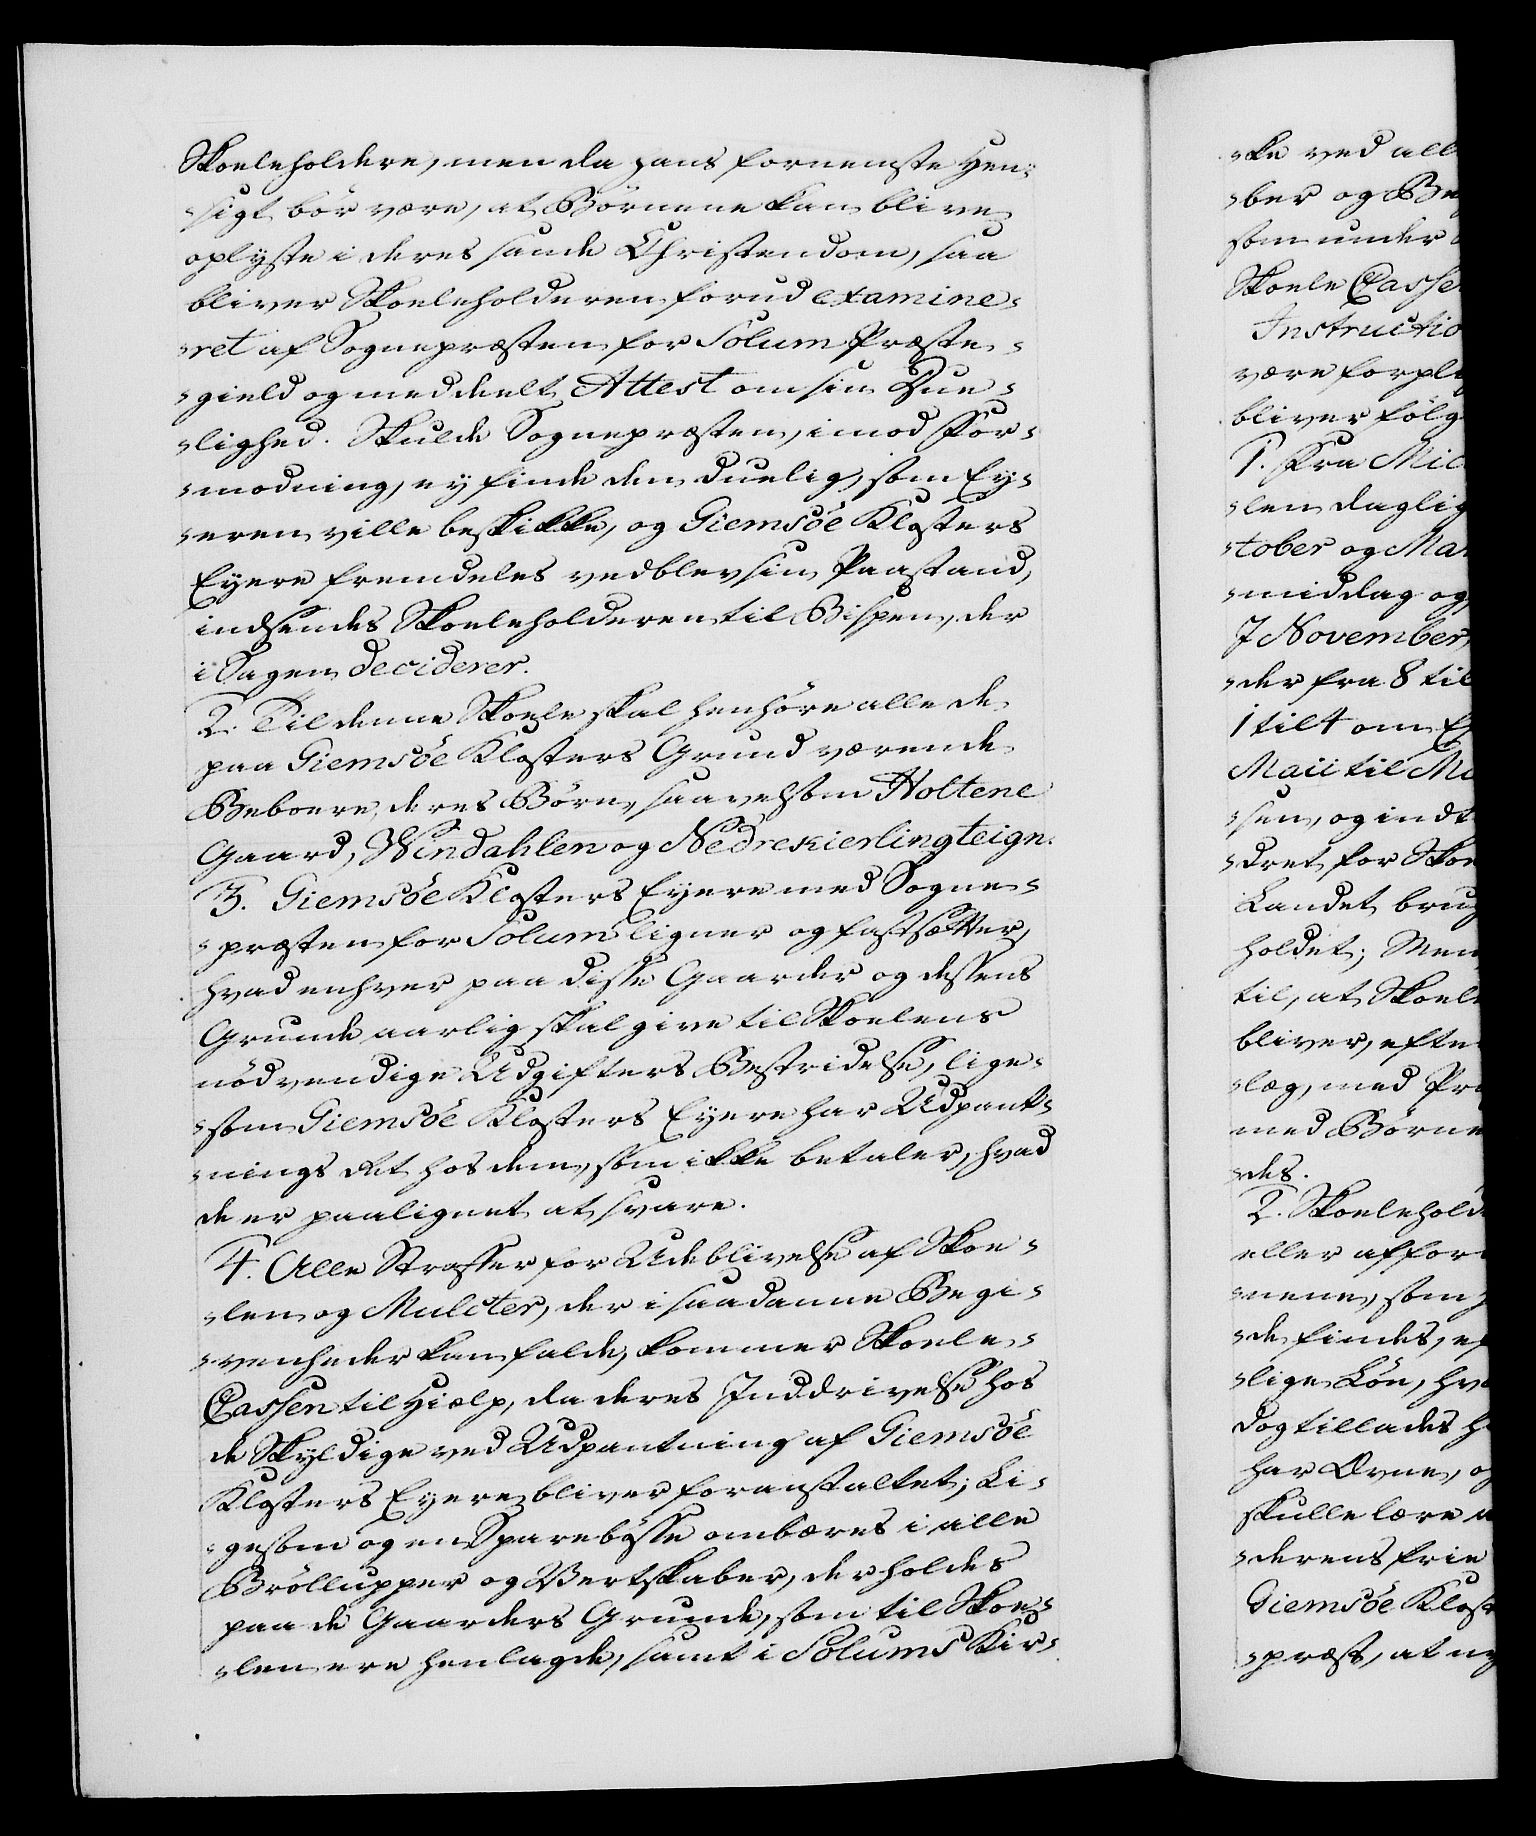 Skoeleholdere, men da hans fornemste Hen-
-sigt bör være, at Börnene kan blive
oplyste i deres sande Christendom, saa
bliver Skoeleholderen forud examine-
-ret af Sognepræsten for Solum Præste-
-gield og meddeelt Attest om sin Due-
-lighed. Skulde Sognepræsten, imod For-
-modning, ey finde den duelig, som Ey-
-eren ville beskikke, og Giemsöe Klosters
Eyere fremdeles vedblev sin Paastand,
indsendes Skoeleholderen til Bispen, der
i Sagen deciderer.
2. Til denne Skoele skal henhöre alle de
paa Giemsöe Klosters Grund værende
Beboere, deres Börn, saavelsom Holtene
Gaard, Windahlen og Nedrekierlingteign.
3. Giemsöe Klosters Eyere med Sogne-
-præsten for Solum ligner og fastsætter,
hvad enhver paa disse Gaarder og dessens
Grunde aarlig skal give til Skoelens
nödvendige Udgifters Bestridelse, lige-
-som Giemsöe Klosters Eyere har Udpant-
-nings Ret hos dem, som ikke betaler, hvad
de er paalignet at svare.
4. Alle Straffer for Udeblivelse af Skoe-
-len og Mulcter, der i saadanne Begi-
-venheder kan falde, kommer Skoele-
Cassen til Hielp, da deres Inddrivelse hos
de Skyldige ved Udpantning af Giemsöe
Klosters Eyere bliver foranstaltet; Li-
-gesom og en Sparebösse ombæres i alle
Bröllupper og Vertskaber, der holdes
paa de Gaarders Grunde, som til Skoe-
-len ere henlagde, samt i Solums Kir-
-ke ved all
-ber og Be
som under
Skoele Casse
Instructio
være forpli
bliver fölg
1. Fra Mic
-len daglig
-tober og Ma
-middag og
I November
-der fra 8 til
1 til 4 om E
Maii til M
-sen, og indt
-dret for Skoe
Landet brug
holdet; Men
til, at Skoel
bliver, efter
-læg, med Pr
med Börne
-des.
2. Skoelehold
eller affor
-nene, som
-de findes, e
-lige Lön, hv
dog tillades h
har Evne, og
skulle lære a
-derens frie
Giemsöe Klost
-præst, at ny